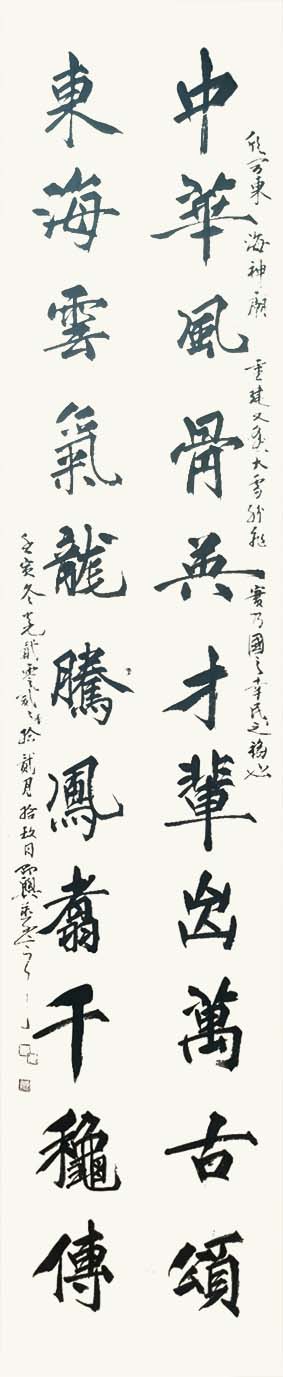 欣聞東海神廟重建又逢大雪紛飛實乃國之幸民之福也
中華風骨英才輩出萬古頌
東海雲氣龍騰鳳翥千龝傳
壬寅冬貳零貳貳拾貳月拾玖日